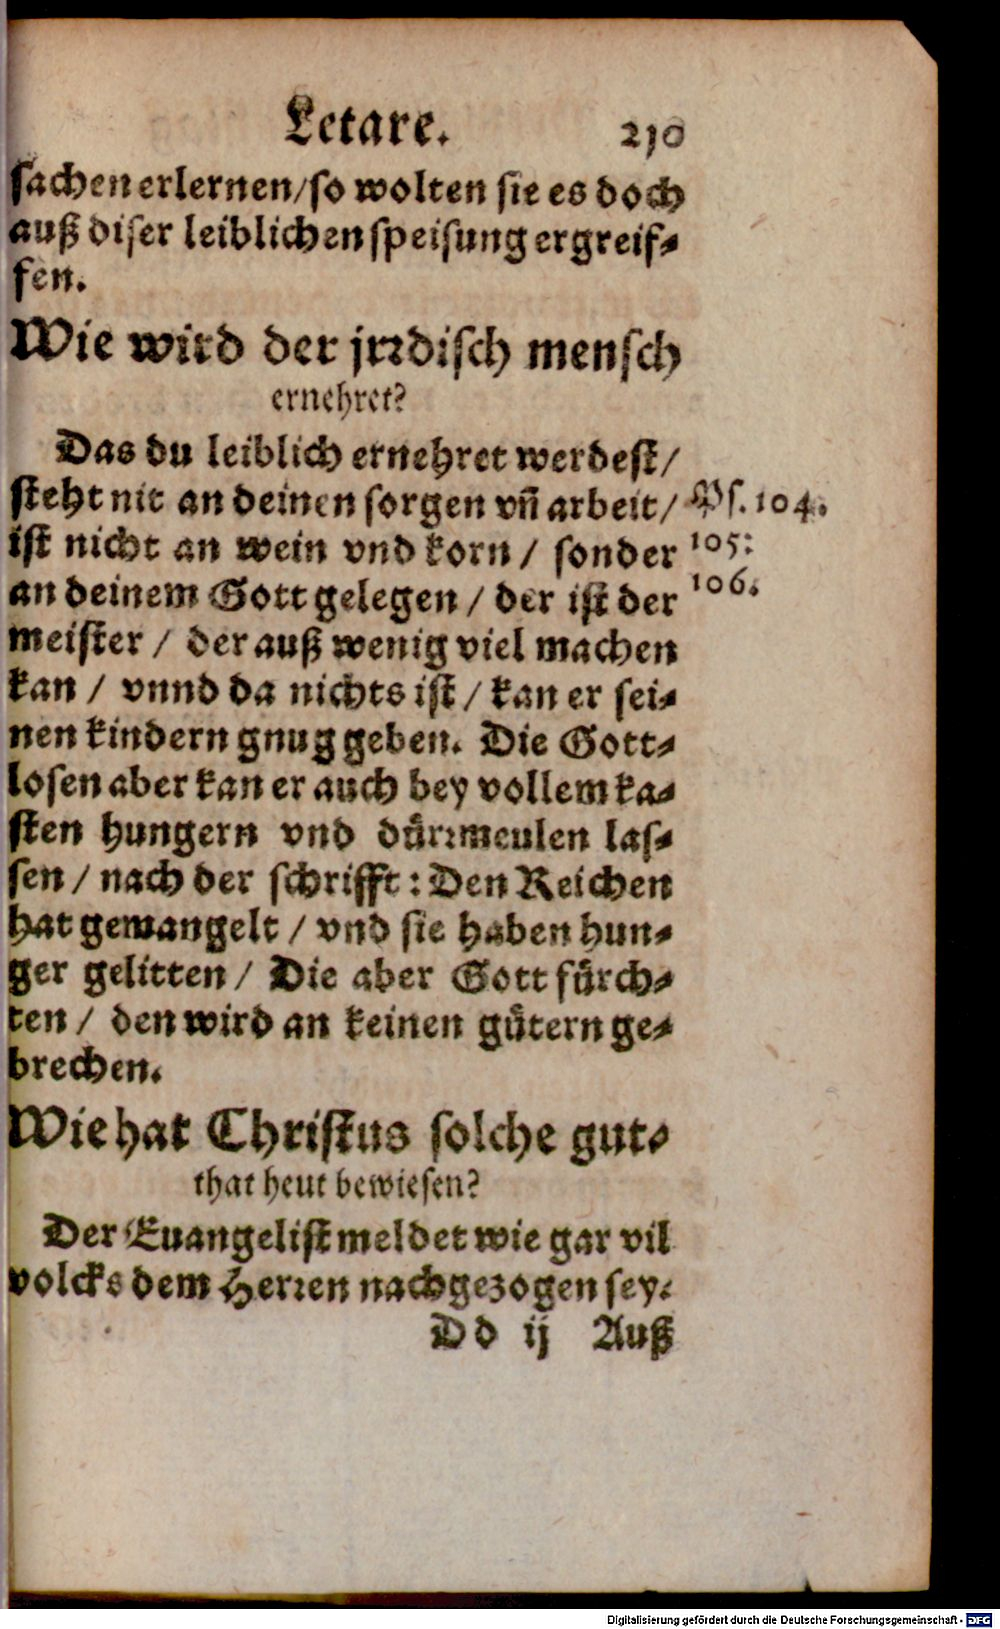 Letare. 210
sachen erlernen/so wolten sie es doch
auß diser leiblichen speisung ergreif-
fen.
Wie wird der jrrdisch mensch
ernehret?
Das du leiblich ernehret werdest/
steht nit an deinen sorgen vn̄ arbeit/ Ps. 104.
ist nicht an wein vnd korn / sonder 105:
an deinem Gott gelegen / der ist der 106.
meister / der auß wenig viel machen
kan / vnnd da nichts ist / kan er sei-
nen kindern gnug geben. Die Gott-
losen aber kan er auch bey vollem ka-
sten hungern vnd duͤrrmeulen las-
sen / nach der schrifft: Den Reichen
hat gemangelt / vnd sie haben hun-
ger gelitten / Die aber Gott fuͤrch-
ten / den wird an keinen guͤtern ge-
brechen.
Wie hat Christus solche gut-
that heut bewiesen?
Der Euangelist meldet wie gar vil
volcks dem Herren nachgezogen sey.
Dd ij Auß
Digitalisierung gefördert durch die Deutsche Forschungsgemeinschaft - DFG